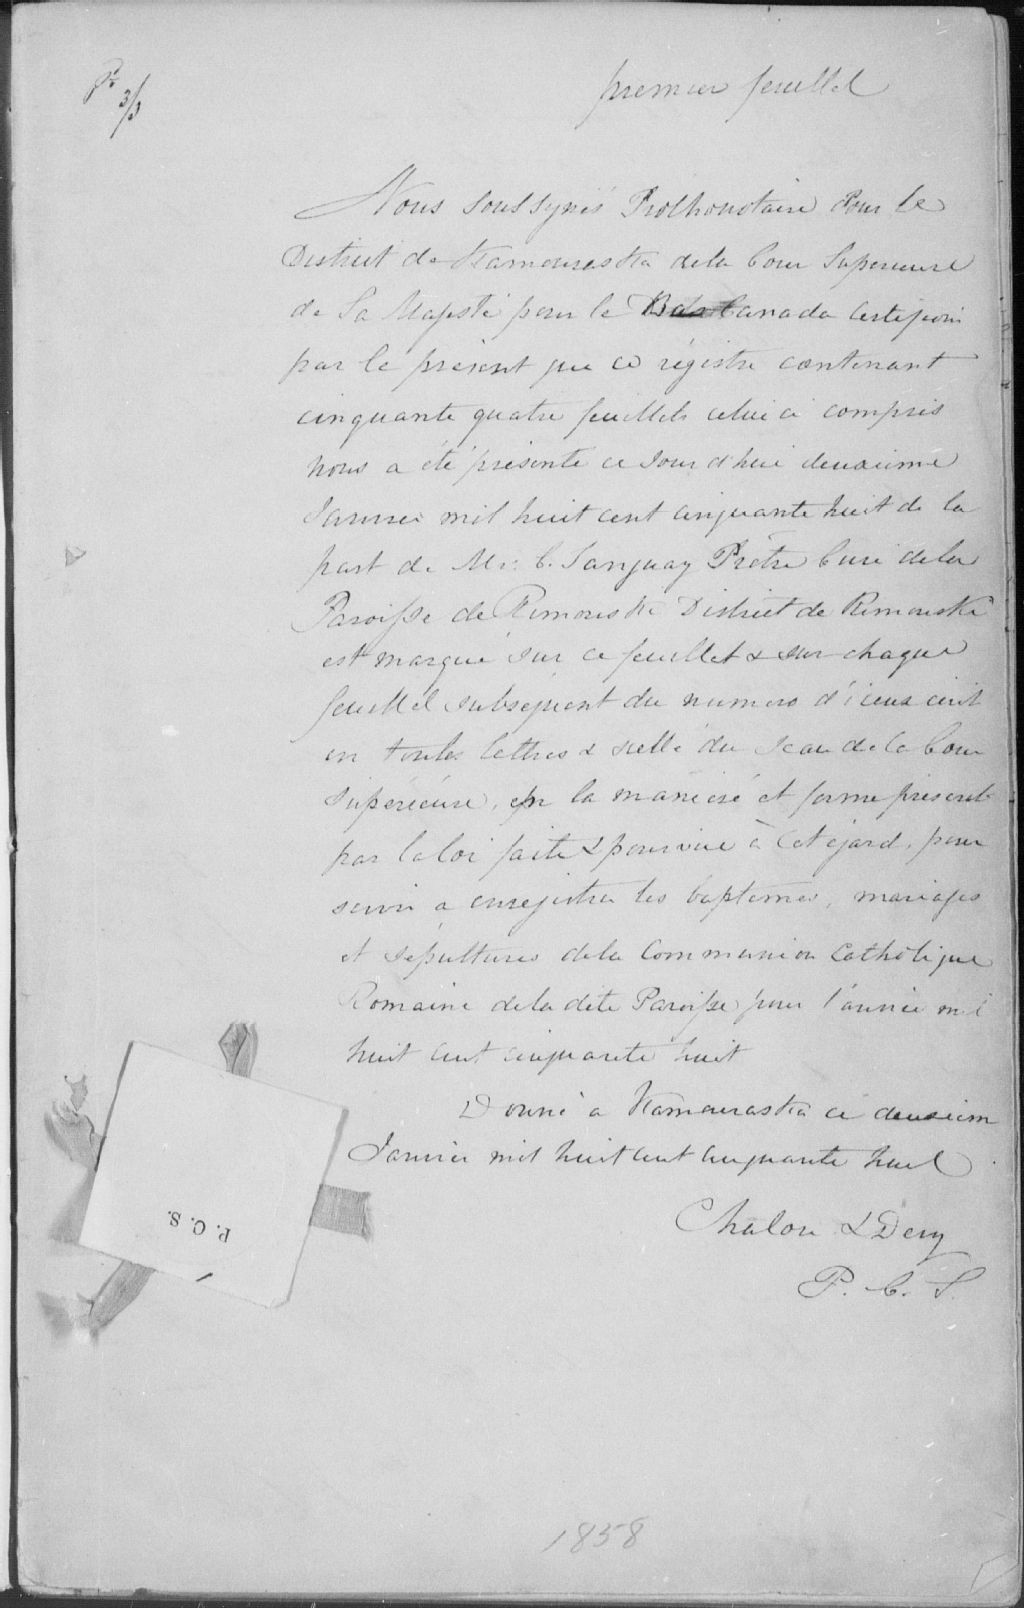 premier feuillet
Nous soussignés Prothonotaire Pour le
District de Kamouraska de la Cour Superieure
de Sa Majesté pour le Bas Canada Certifions
par le présent que ce régistre contenant
cinquante quatre feuillets celui ci compris
nous a été présenté ce Jour d'hui deuxième
Janvier mil huit cent cinquante huit de la
part de Mr: C. Tanguay Prêtre Curé de la
Paroisse de Rimouski District de Kamouraska
est marqué sur ce feuillet & sur chaque
feuillet subséquent du numero d'iceux écrit
en toutes lettres & scellé du Sceau de la Cour
Supérieure, en la maniere et forme prescrite
par la loi faite & pourvue à cet égard, pour
servir a enregistrer les baptêmes, mariages
et sépultures de la Communion Catholique
Romaine de la dite Paroisse pour l'année mil
huit cent cinquante huit
Donné a Kamouraska ce deuxiem
Janvier mil huit cent cinquante huit
Chalou & Dery
P. C. S.
P. C. S.
1858